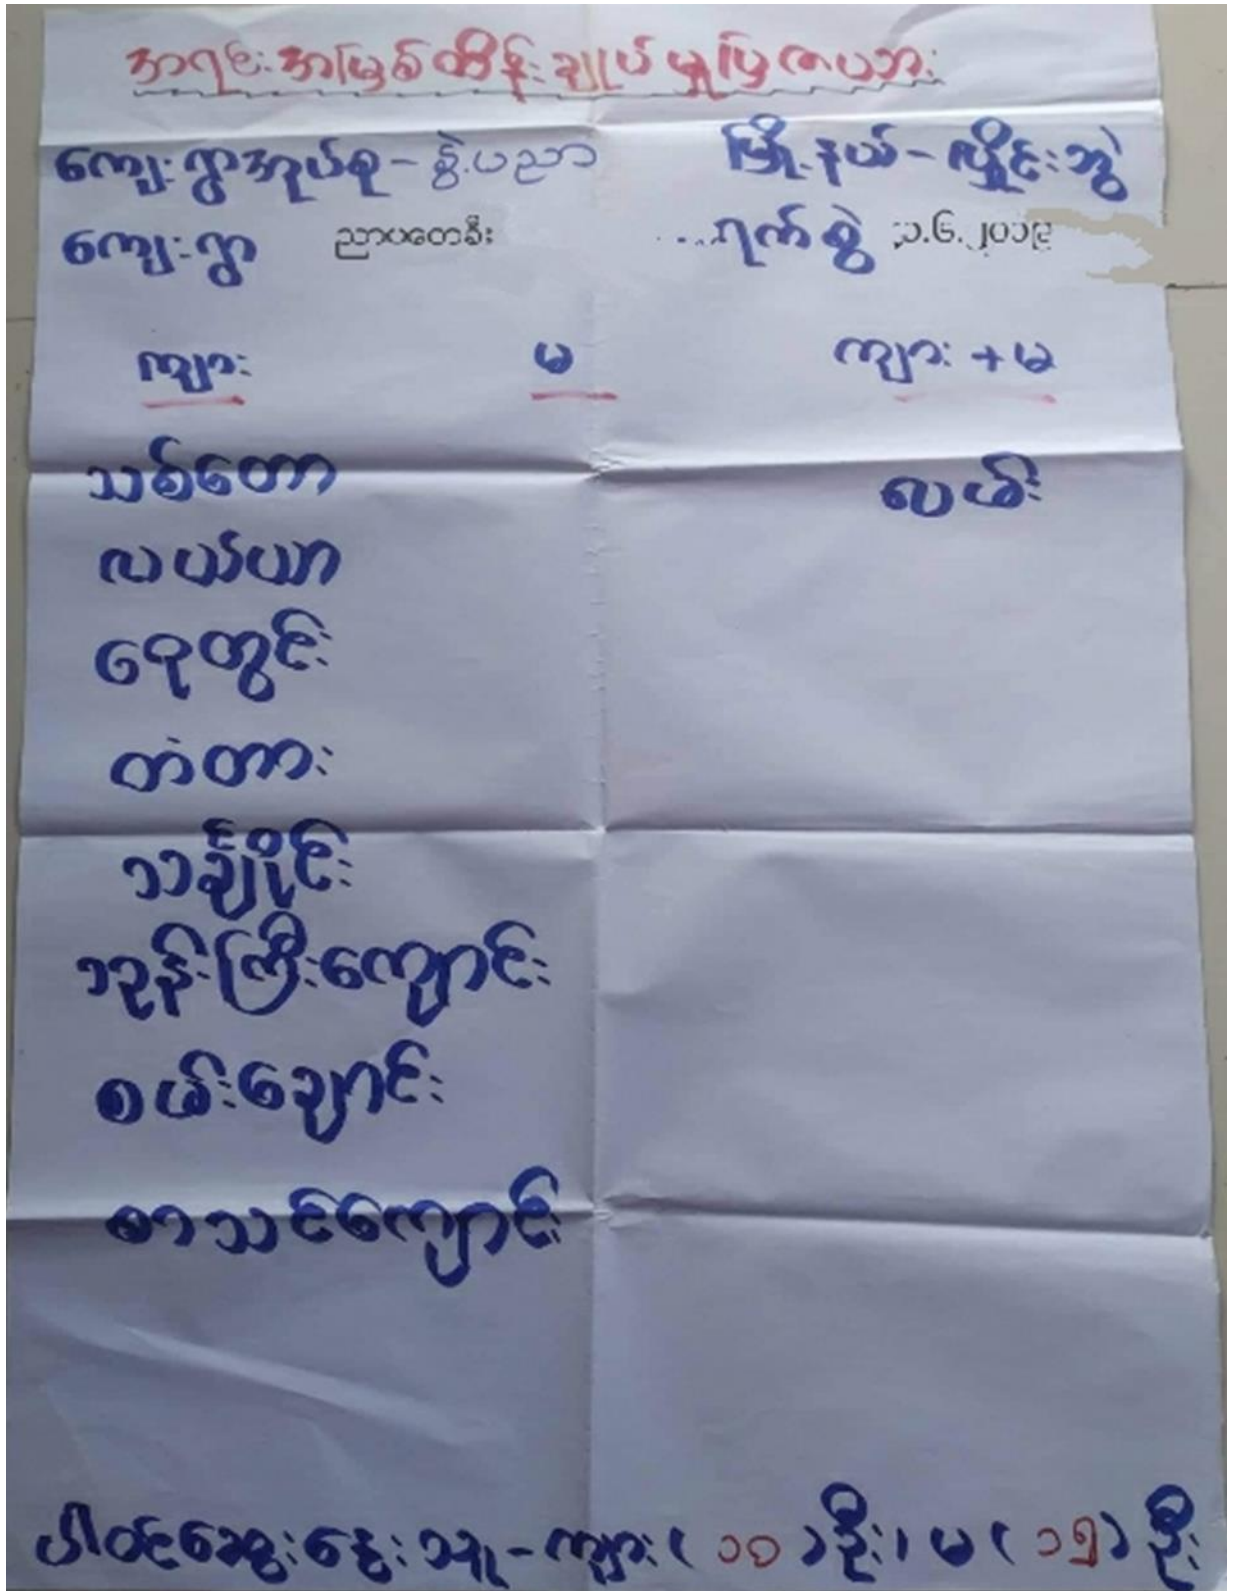 အရင်းအမြစ်ထိန်းချုပ်မှုပြဇယား
ကျေးရွာအုပ်စု - စွဲပညာ မြို့နယ် - လှိုင်းဘွဲ
ကျေးရွာ ညာပတေခီး ...ရက်စွဲ ၁.၆.၂၀၁၉
ကျား မ ကျား + မ
သစ်တော လမ်း
လယ်ယာ
ရေတွင်း
တံတား
သင်္ချိုင်း
ဘုန်းကြီးကျောင်း
စမ်းချောင်း
စာသင်ကျောင်း
ပါဝင်ဆွေးနွေးသူ - ကျား ( ၁၀ ) ဦး၊ မ ( ၁၅ ) ဦး